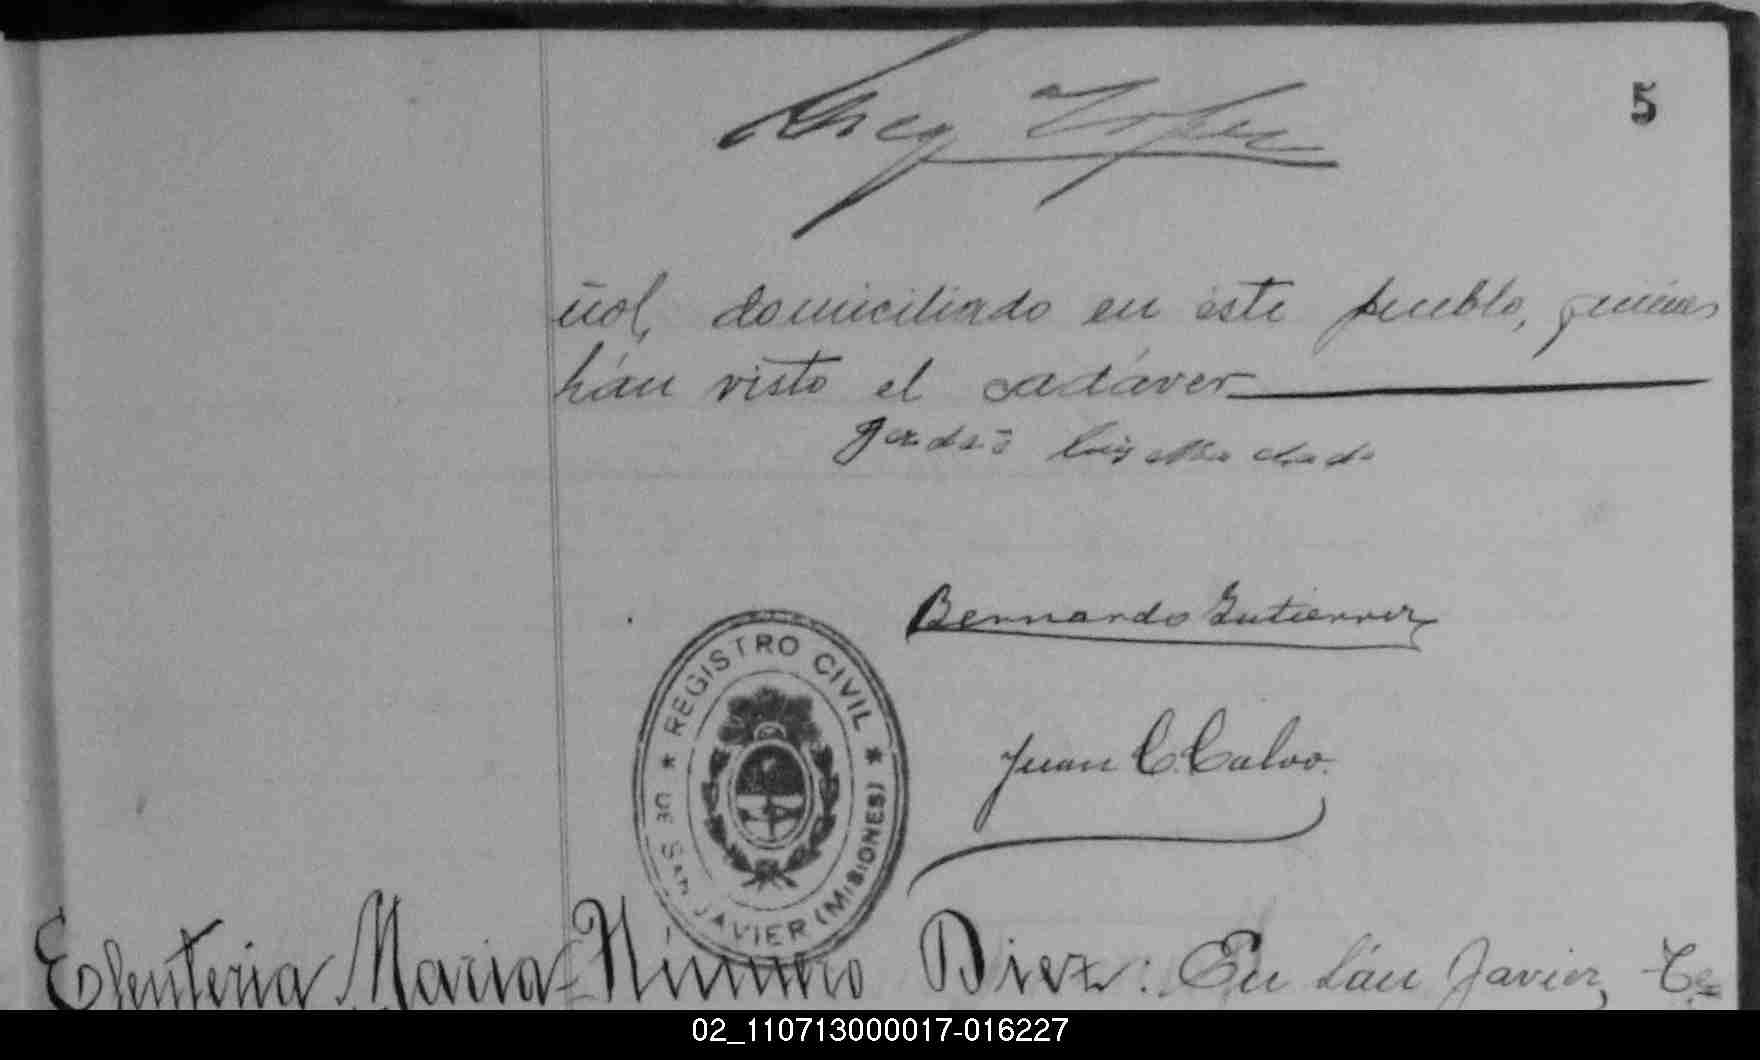 5
Lopez
ñol, domiciliado en éste pueblo, quiénes
hán visto el cadáver
Luis Machado
Bernardo Gutierrez
REGISTRO CIVIL
DE SAN JAVIER (MISIONES)
Juan C. Calvo.
Eleuteria Maria Número Diez: En Sán Javier, Te=
02_110713000017-016227